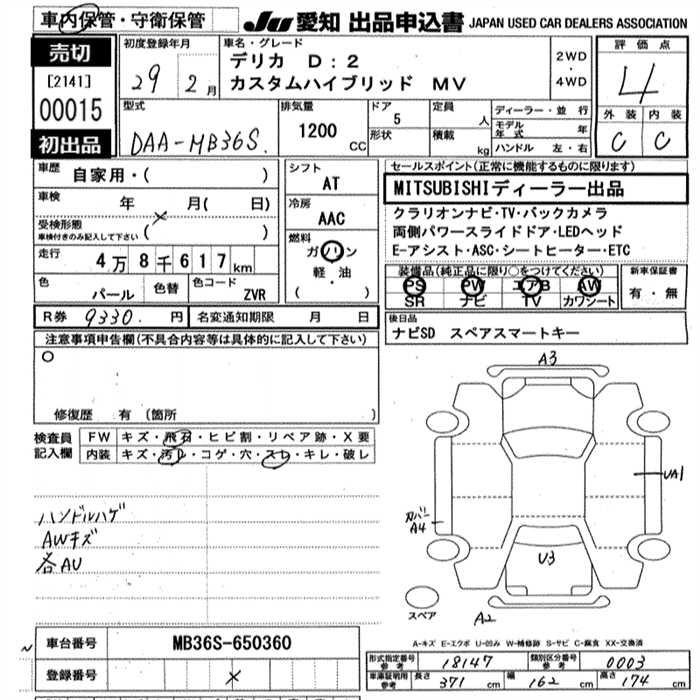 車内保管・守衛保管
JU 愛知 出品申込書 JAPAN USED CAR DEALERS ASSOCIATION
売切
[2141]
00015
初出品
初度登録年月
29年 2月
車名・グレード
デリカ D:2
カスタムハイブリッド MV
2WD
・
4WD
評価点
4
外装 内装
C C
型式
DAA-MB36S.
排気量
1200 CC
ドア
5
形状
定員 人
積載 kg
ディーラー・並行
モデル年式 年
ハンドル 左・右
車歴 自家用・( )
車検 年 月( 日)
受検形態
車検付きのみ記入して下さい ( )
走行 4万8千617km
色 パール 色替 色コード ZVR
シフト
AT
冷房
AAC
燃料
ガソリン
軽・油
( )
セールスポイント(正常に機能するものに限ります)
MITSUBISHIディーラー出品
クラリオンナビ・TV・バックカメラ
両側パワースライドドア・LEDヘッド
E-アシスト・ASC・シートヒーター・ETC
装備品(純正品に限り○をつけてください)
PS PW エアB AW
SR ナビ TV カワシート
新車保証書
有・無
R券 9330. 円 名変通知期限 月 日
後日品
ナビSD スペアスマートキー
注意事項申告欄(不具合内容等は具体的に記入して下さい)
○
修復歴 有 (箇所 )
検査員記入欄
FW キズ・飛石・ヒビ割・リペア跡・X要
内装 キズ・汚レ・コゲ・穴・スレ・キレ・破レ
ハンドルハゲ
AWキズ
各AU
A3
UA1
カバー
A4
U3
A2
スペア
A-キズ E-エクボ U-凹み W-補修跡 S-サビ C-腐食 XX-交換済
車台番号 MB36S-650360
登録番号
型式指定番号 参考 18147 類別区分番号 参考 0003
車庫証明用 参考 長さ 371 cm 幅 162 cm 高さ 174 cm